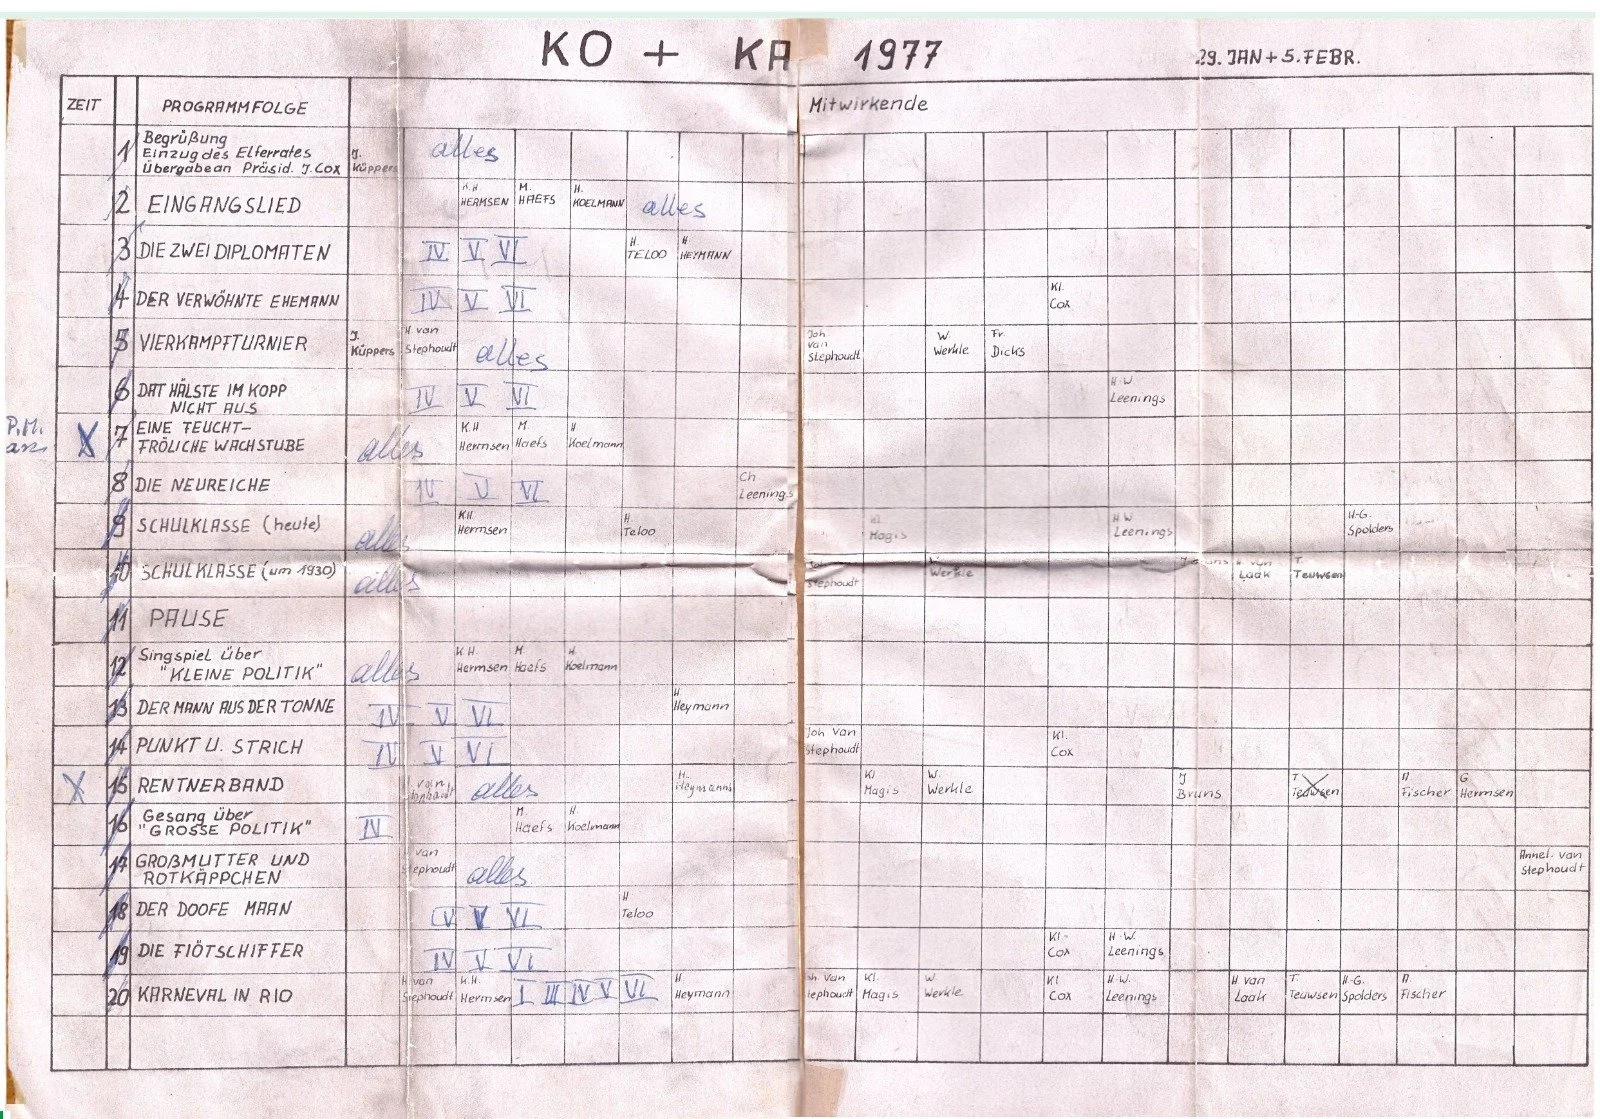 KO + KA 1977 29. JAN + 5. FEBR.
ZEIT PROGRAMMFOLGE Mitwirkende
1 Begrüßung
Einzug des Elferrates J. alles
Übergabean Präsid. J. Cox Küppers
K.H M. H.
2 EINGANGSLIED HERMSEN HAEFS KOELMANN alles
H. H
3 DIE ZWEI DIPLOMATEN IV V VI TELOO HEYMANN
Kl.
4 DER VERWÖHNTE EHEMANN IV V VI Cox
J. H van Joh van W. Fr.
5 VIERKAMPFTURNIER Küppers Stephoudt alles Stephoudt Werkle Dicks
6 DAT HÄLSTE IM KOPP IV V VI H-W
NICHT AUS Leenings
P.M. X 7 EINE FEUCHT- K.H M. H
FRÖLICHE WACHSTUBE alles Hermsen Haefs Koelmann
Ch
8 DIE NEUREICHE IV V VI Leenings
KH H. Kl. H.W H-G.
9 SCHULKLASSE (heute) alles Hermsen Teloo Magis Leenings Spolders
10 SCHULKLASSE (um 1930) alles Stephoudt Werkle van Laak T. Teuwsen
11 PAUSE
12 Singspiel über K.H. M H.
"KLEINE POLITIK" alles Hermsen Haefs Koelmann
H
13 DER MANN AUS DER TONNE IV V VI Heymann
Joh van Kl.
14 PUNKT U. STRICH IV V VI Stephoudt Cox
H. Kl W. J T A G
X 15 RENTNERBAND alles Heymann Magis Werkle Bruns Teuwsen Fischer Hermsen
16 Gesang über M. H.
"GROSSE POLITIK" IV Haefs Koelmann
17 GROßMUTTER UND van Annel. van
ROTKÄPPCHEN Stephoudt alles Stephoudt
H
18 DER DOOFE MAAN IV V VI Teloo
Kl.- H-W.
19 DIE FIÖTSCHIFFER IV V VI Cox Leenings
H van K.H. H Joh. van Kl. W. Kl H-W. H van T. H-G. A.
20 KARNEVAL IN RIO Stephoudt Hermsen I III IV V VI Heymann Stephoudt Magis Werkle Cox Leenings Laak Teuwsen Spolders Fischer